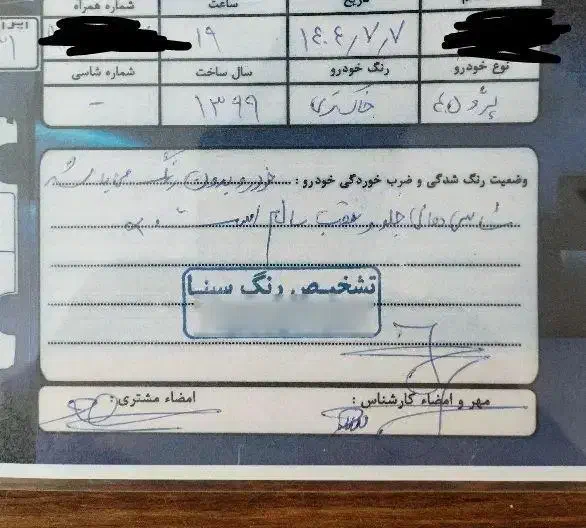 تاریخ ساعت شماره همراه
۱۴۰۴/۷/۷ ۱۹
نوع خودرو رنگ خودرو سال ساخت شماره شاسی
پژو ۴۰۵ خاکستری ۱۳۹۹ -
وضعیت رنگ شدگی و ضرب خوردگی خودرو : خودرو بدون رنگ می باشد
شاسی های جلو و عقب سالم است
تشخیص رنگ سینا
مهر و امضاء کارشناس : امضاء مشتری :